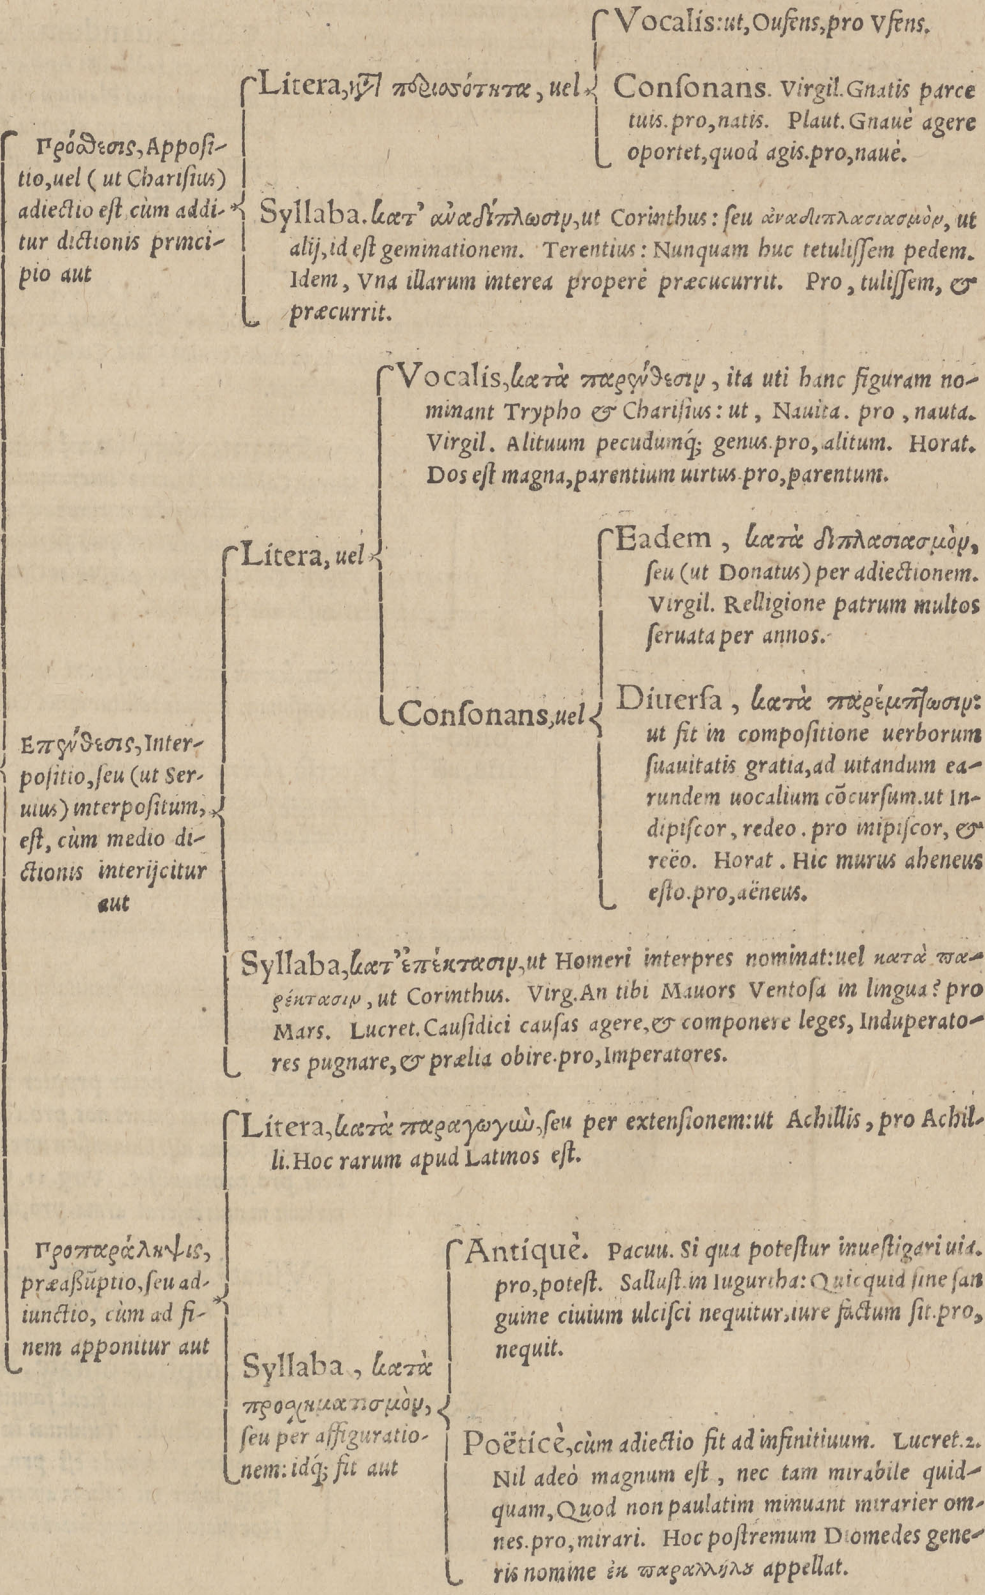 Πρόσθεσις, Appoſi-
tio, uel (ut Chariſius)
adiectio eſt cùm addi-
tur dictionis princi-
pio aut
Litera, κατὰ περιοσότητα, uel
Vocalis: ut, Ouſens, pro Vſens.
Conſonans. Virgil. Gnatis parce
tuis. pro, natis. Plaut. Gnauè agere
oportet, quod agis. pro, nauè.
Syllaba. κατ' ἀναδίπλωσιν, ut Corinthus: ſeu ἀναδιπλασιασμὸν, ut
alij, id eſt geminationem. Terentius: Nunquam huc tetuliſſem pedem.
Idem, Vna illarum interea properè præcucurrit. Pro, tuliſſem, &
præcurrit.
Επένθεσις, Inter-
poſitio, ſeu (ut Ser-
uius) interpoſitum,
eſt, cùm medio di-
ctionis interijcitur
aut
Litera, uel
Vocalis, κατὰ παρένθεσιν, ita uti hanc figuram no-
minant Trypho & Chariſius: ut, Nauita. pro, nauta.
Virgil. Alituum pecudumq́; genus. pro, alitum. Horat.
Dos eſt magna, parentium uirtus. pro, parentum.
Conſonans, uel
Eadem, κατὰ διπλασιασμὸν,
ſeu (ut Donatus) per adiectionem.
Virgil. Relligione patrum multos
ſeruata per annos.
Diuerſa, κατὰ παρέμπτωσιν:
ut fit in compoſitione uerborum
ſuauitatis gratia, ad uitandum ea-
rundem uocalium cõcurſum. ut In-
dipiſcor, redeo. pro inipiſcor, &
reëo. Horat. Hic murus aheneus
eſto. pro, aëneus.
Syllaba, κατ' ἐπέκτασιν, ut Homeri interpres nominat: uel κατὰ πα-
ρέκτασιν, ut Corinthus. Virg. An tibi Mauors Ventoſa in lingua? pro
Mars. Lucret. Cauſidici cauſas agere, & componere leges, Induperato-
res pugnare, & prælia obire. pro, Imperatores.
Προπαράληψις,
præaßũptio, ſeu ad-
iunctio, cùm ad fi-
nem apponitur aut
Litera, κατὰ παραγωγὼ, ſeu per extenſionem: ut Achillis, pro Achil-
li. Hoc rarum apud Latinos eſt.
Syllaba, κατὰ
προσχηματισμὸν,
ſeu per affiguratio-
nem: idq́; fit aut
Antiquè. Pacuu. Si qua poteſtur inueſtigari uia.
pro, poteſt. Salluſt. in Iugurtha: Quicquid ſine ſan
guine ciuium ulciſci nequitur, iure factum ſit. pro,
nequit.
Poëticè, cùm adiectio fit ad infinitiuum. Lucret. 2.
Nil adeò magnum eſt, nec tam mirabile quid-
quam, Quod non paulatim minuant mirarier om-
nes. pro, mirari. Hoc poſtremum Diomedes gene-
ris nomine ἐκ παραλλήλου appellat.